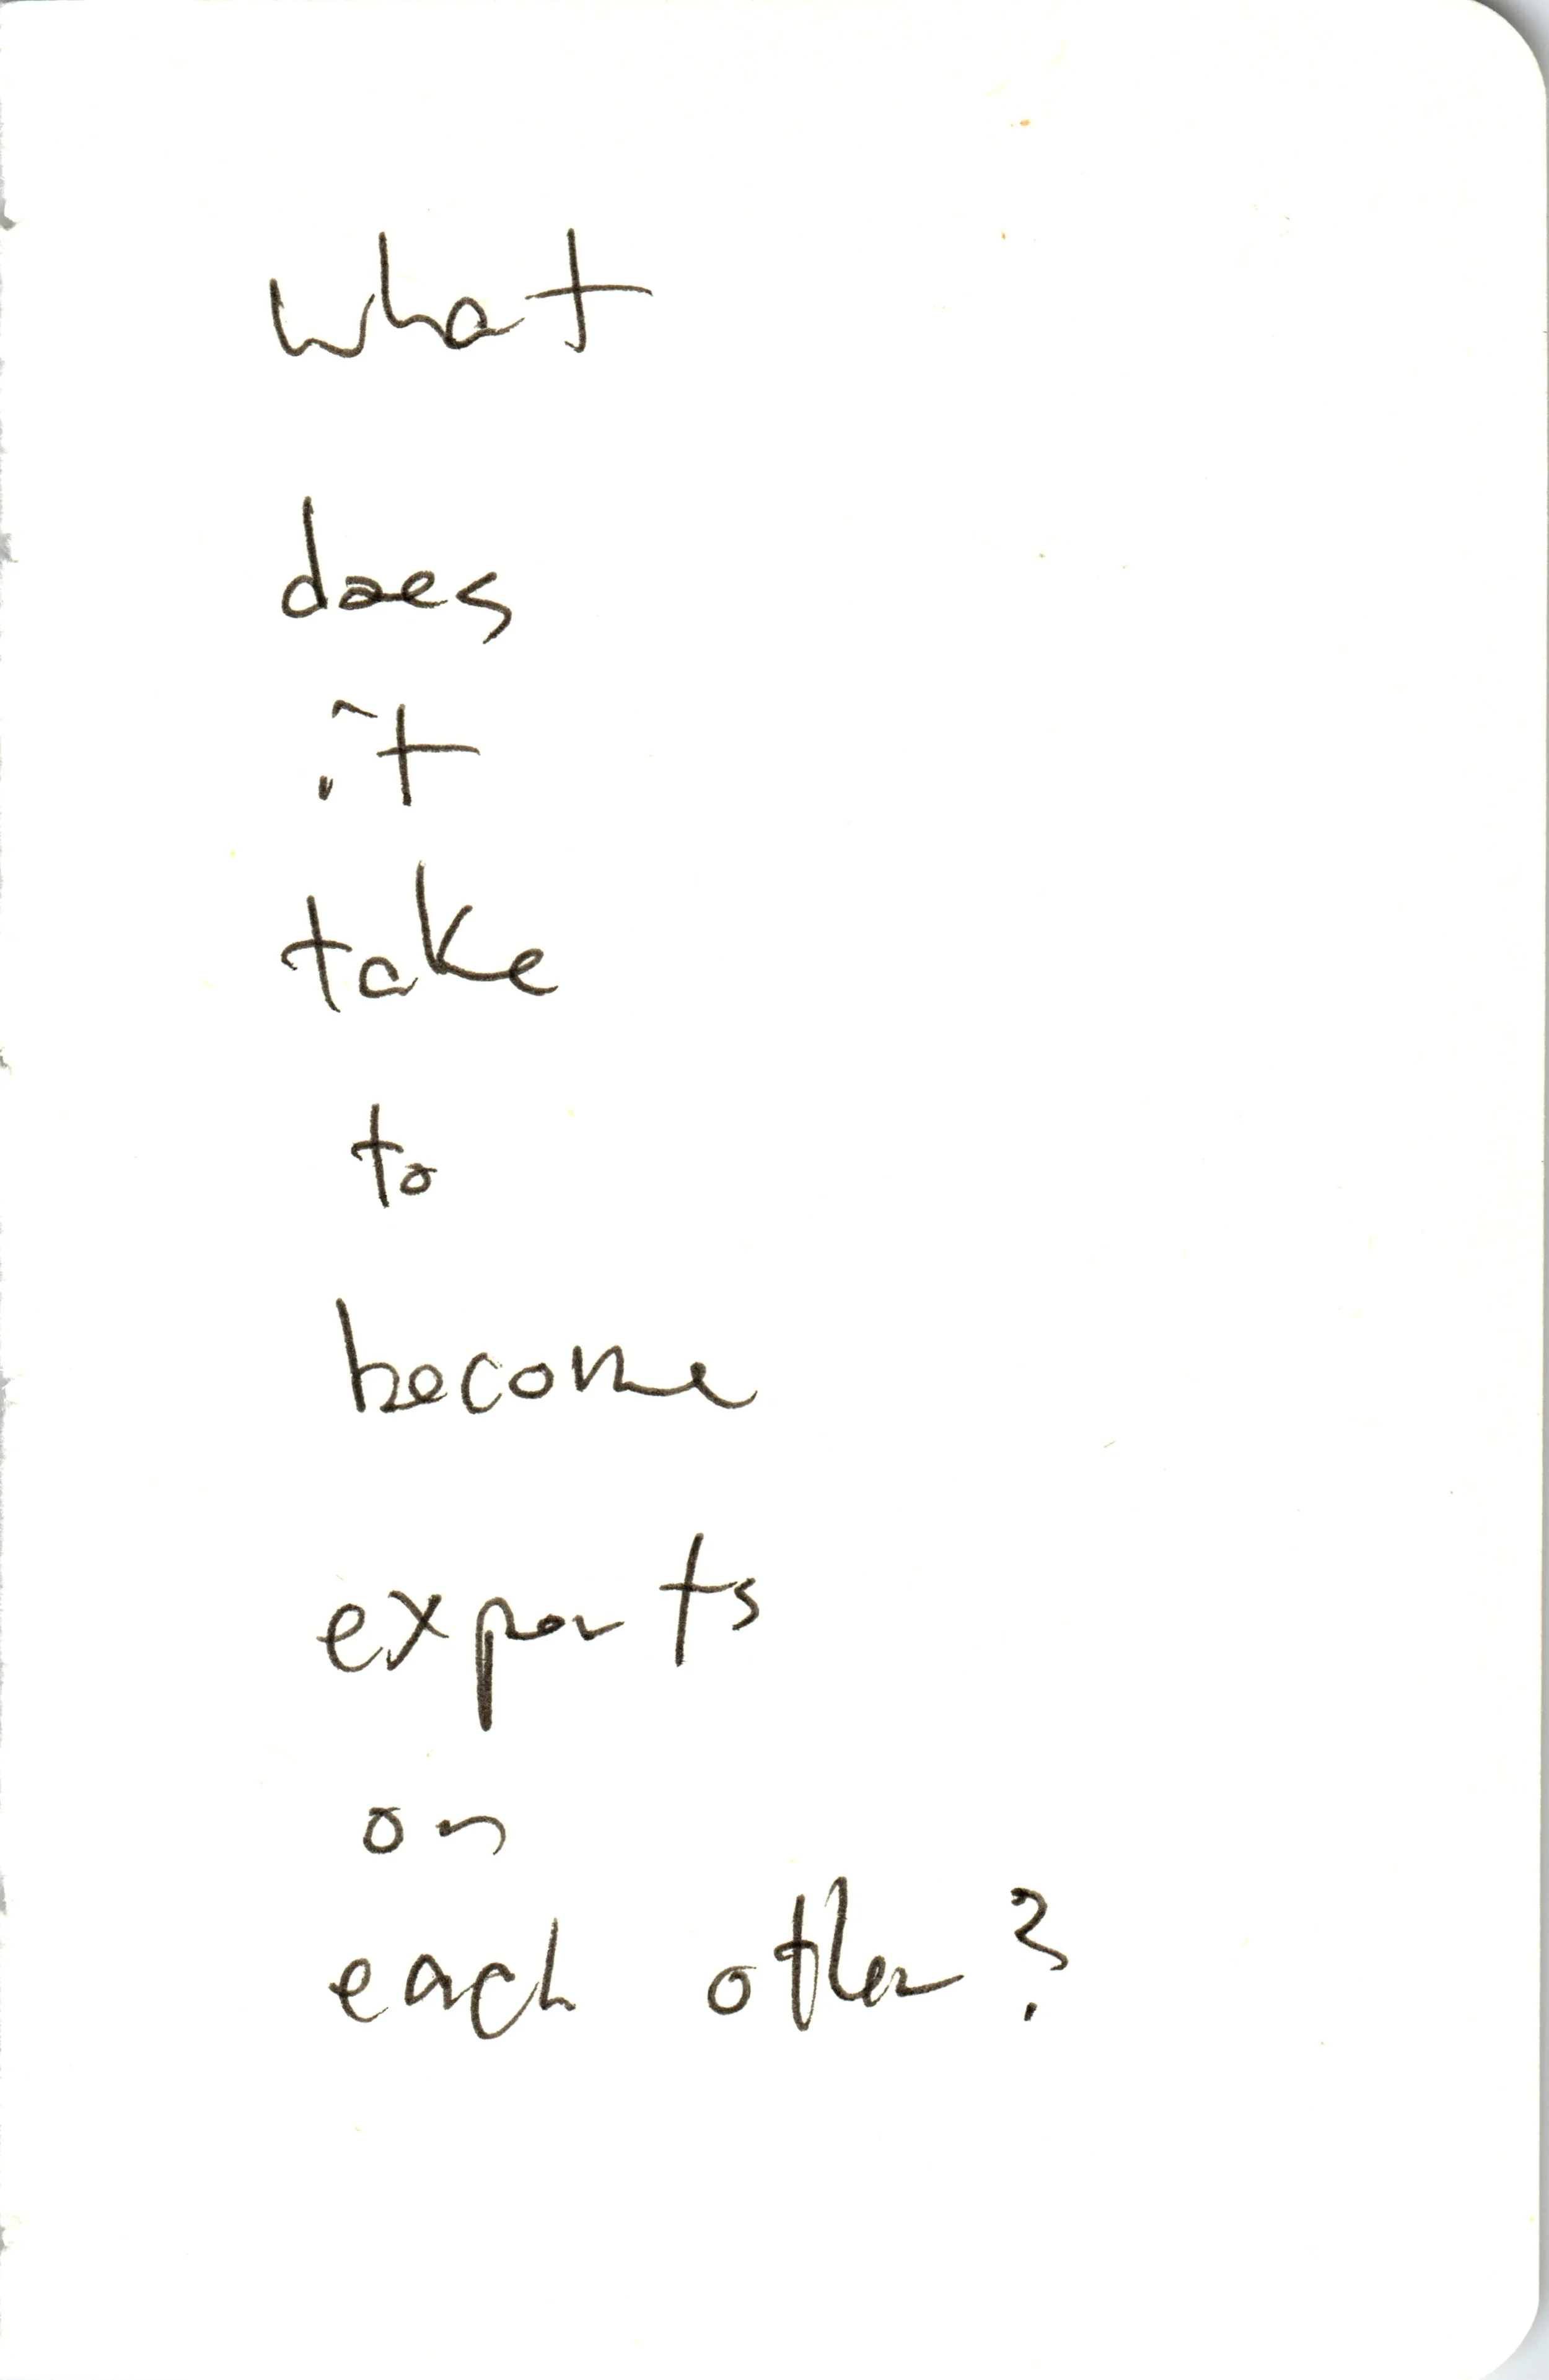 what
does
it
take
to
become
experts
on
each other?